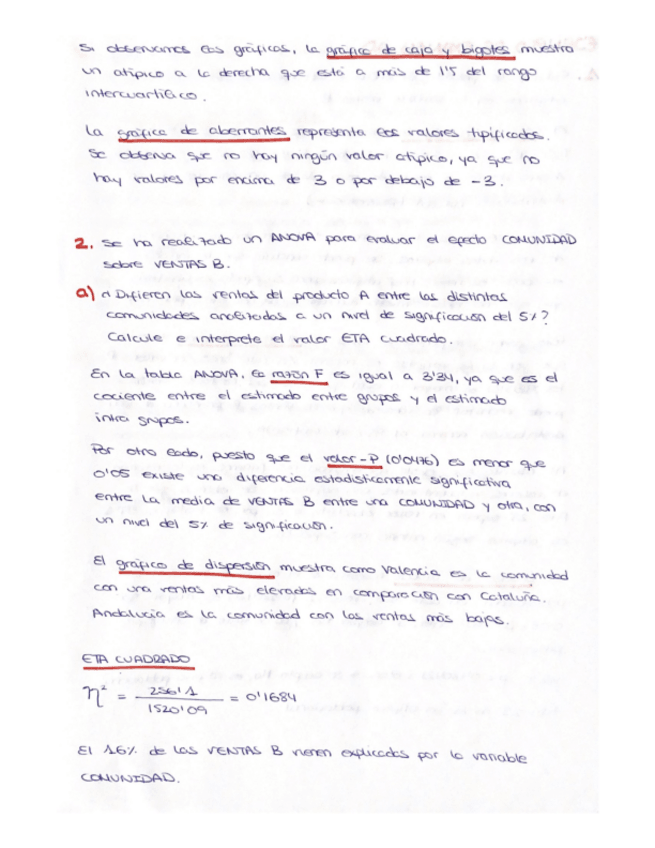 Si observamos las gráficas, la gráfica de caja y bigotes muestra
un atípico a la derecha que está a más de 1'5 del rango
intercuartílico.
La gráfica de aberrantes representa los valores tipificados.
Se observa que no hay ningún valor atípico, ya que no
hay valores por encima de 3 o por debajo de -3.
2. Se ha realizado un ANOVA para evaluar el efecto COMUNIDAD
sobre VENTAS B.
a) ¿Difieren las ventas del producto A entre las distintas
comunidades analizadas a un nivel de significación del 5%?
Calcule e interprete el valor ETA cuadrado.
En la tabla ANOVA, la razón F es igual a 3'34, ya que es el
cociente entre el estimado entre grupos y el estimado
intra grupos.
Por otro lado, puesto que el valor-P (0'0476) es menor que
0'05 existe una diferencia estadísticamente significativa
entre la media de VENTAS B entre una COMUNIDAD y otra, con
un nivel del 5% de significación.
El gráfico de dispersión muestra como Valencia es la comunidad
con una ventas más elevadas en comparación con Cataluña.
Andalucía es la comunidad con las ventas más bajas.
ETA CUADRADO
η² = 256'1 / 1520'09 = 0'1684
El 16% de las VENTAS B vienen explicadas por la variable
COMUNIDAD.